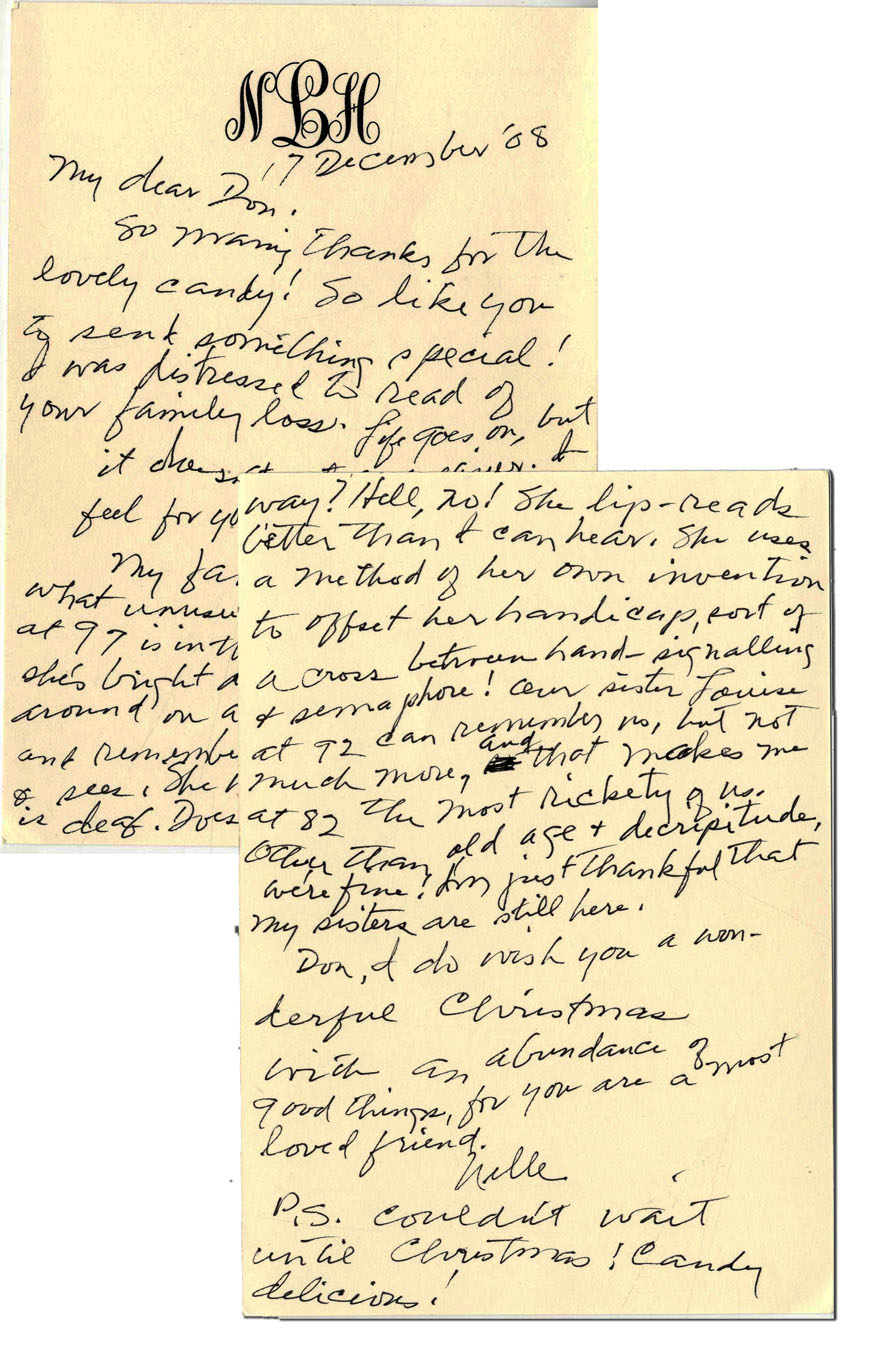 NLH
17 December '08
My dear Don:
So many thanks for the
lovely candy! So like you
to send something special!
I was distressed to read of
your family loss. Life goes on, but
it
feel for yo
My fa
what unusu
at 97 is in th
she's bright a
around on a
and remembe
& sees. She h
is deaf. Does
way? Hell, no! She lip-reads
better than I can hear. She uses
a method of her own invention
to offset her handicap, sort of
a cross between hand-signalling
& semaphore! Our sister Louise
at 92 can remember us, but not
much more, and that makes me
at 82 the most rickety of us.
Other than old age & decripitude,
we're fine! I'm just thankful that
my sisters are still here.
Don, I do wish you a won-
derful Christmas
with an abundance of
good things, for you are a most
loved friend.
Nelle
P.S. Couldn't wait
until Christmas! Candy
delicious!